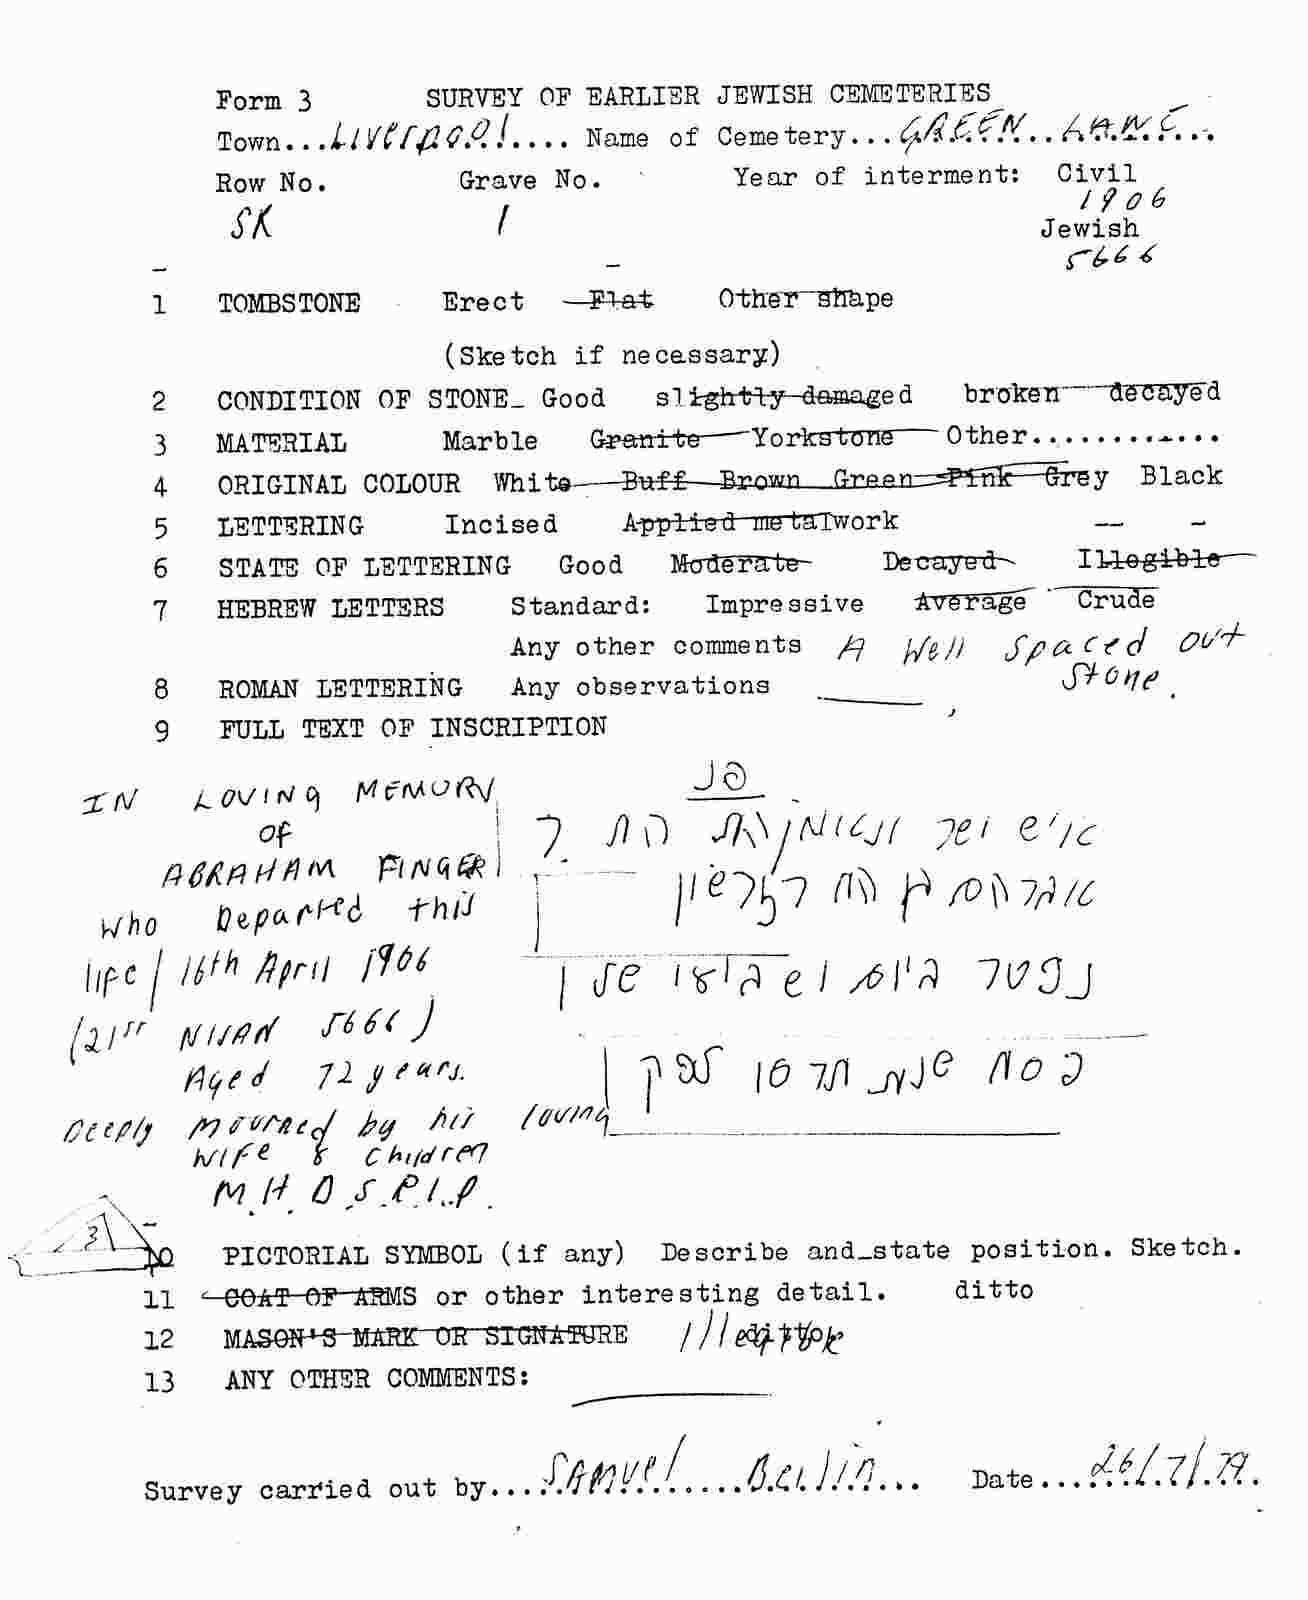 Form 3 SURVEY OF EARLIER JEWISH CEMETERIES
Town...Liverpool.... Name of Cemetery...GREEN..LANE...
Row No. Grave No. Year of interment: Civil
1906
SK 1 Jewish
5666
1 TOMBSTONE Erect Flat Other shape
(Sketch if necessary)
2 CONDITION OF STONE_ Good slightly damaged broken decayed
3 MATERIAL Marble Granite Yorkstone Other............
4 ORIGINAL COLOUR White Buff Brown Green Pink Grey Black
5 LETTERING Incised Applied metalwork
6 STATE OF LETTERING Good Moderate Decayed Illegible
7 HEBREW LETTERS Standard: Impressive Average Crude
Any other comments A Well Spaced out
Stone.
8 ROMAN LETTERING Any observations
9 FULL TEXT OF INSCRIPTION
IN LOVING MEMORY
of
ABRAHAM FINGER
Who Departed this
life 16th April 1906
(21st NISAN 5666)
Aged 72 years.
Deeply mourned by his loving
Wife & Children
M.H.D.S.R.I.P.
פנ
איש ישר
אברהם בן
נפטר ביום ו שביעי של
פסח שנת תרסו לפק
3
10 PICTORIAL SYMBOL (if any) Describe and_state position. Sketch.
11 COAT OF ARMS or other interesting detail. ditto
12 MASON'S MARK OR SIGNATURE ditto
13 ANY OTHER COMMENTS:
Survey carried out by.....Samuel.....Berlin... Date...26/7/79.